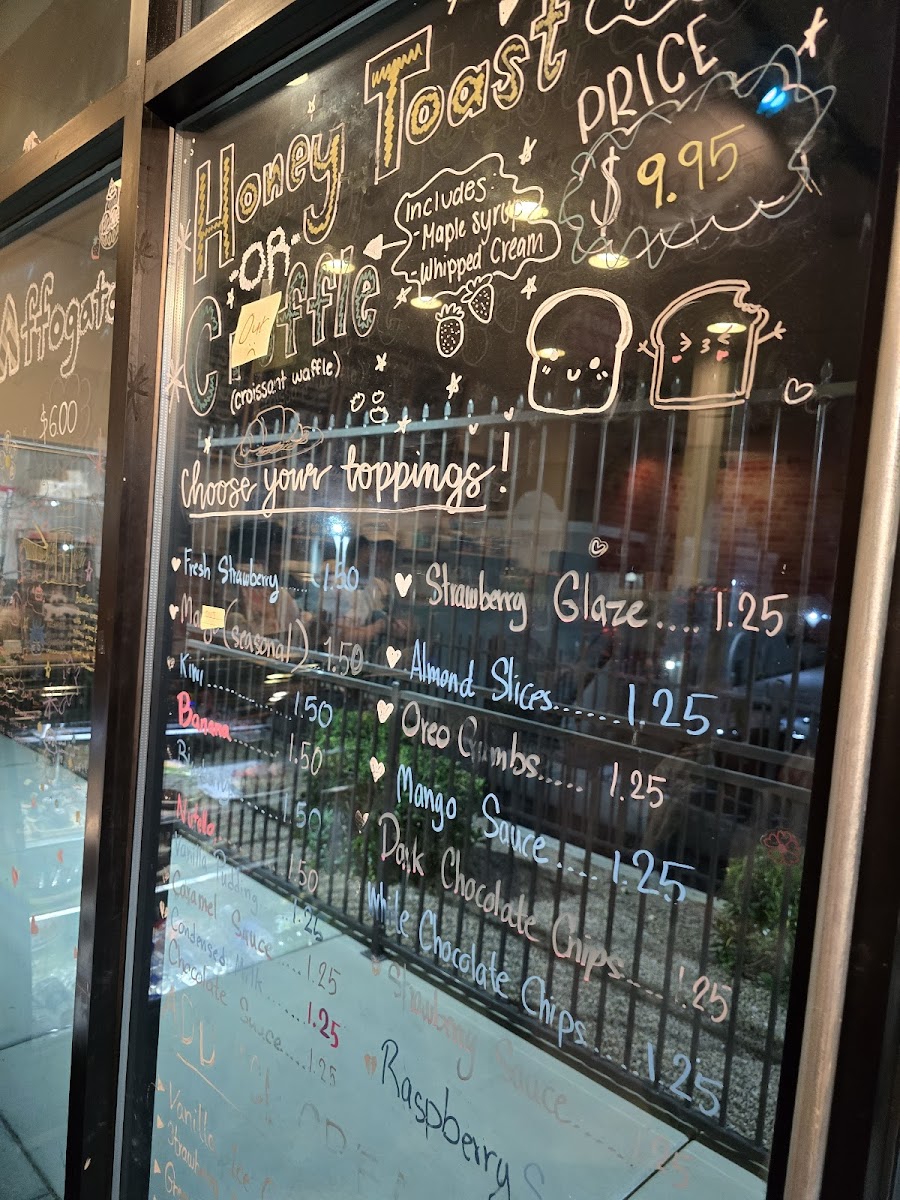 Affogato
$6.00
Honey Toast
-OR-
Croffle
Out
(croissant waffle)
Includes:
- Maple Syrup
- Whipped Cream
PRICE
$ 9.95
Choose your toppings!
Fresh Strawberry.....1.50
Mango (seasonal) 1.50
Kiwi..........1.50
Banana..........1.50
1.50
Nutella 1.50
Vanilla Pudding 1.25
Caramel Sauce....1.25
Condensed Milk.....1.25
Chocolate Sauce.....1.25
Strawberry Glaze.....1.25
Almond Slices.......1.25
Oreo Crumbs.....1.25
Mango Sauce.....1.25
Dark Chocolate Chips.....1.25
White Chocolate Chips....1.25
Strawberry Sauce....1.25
Raspberry
Vanilla Ice
Strawberry